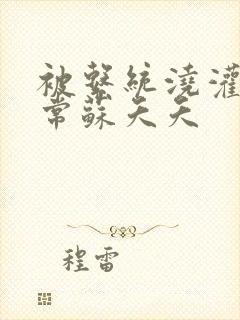 被繫統澆灌
常蘇天天
程雷